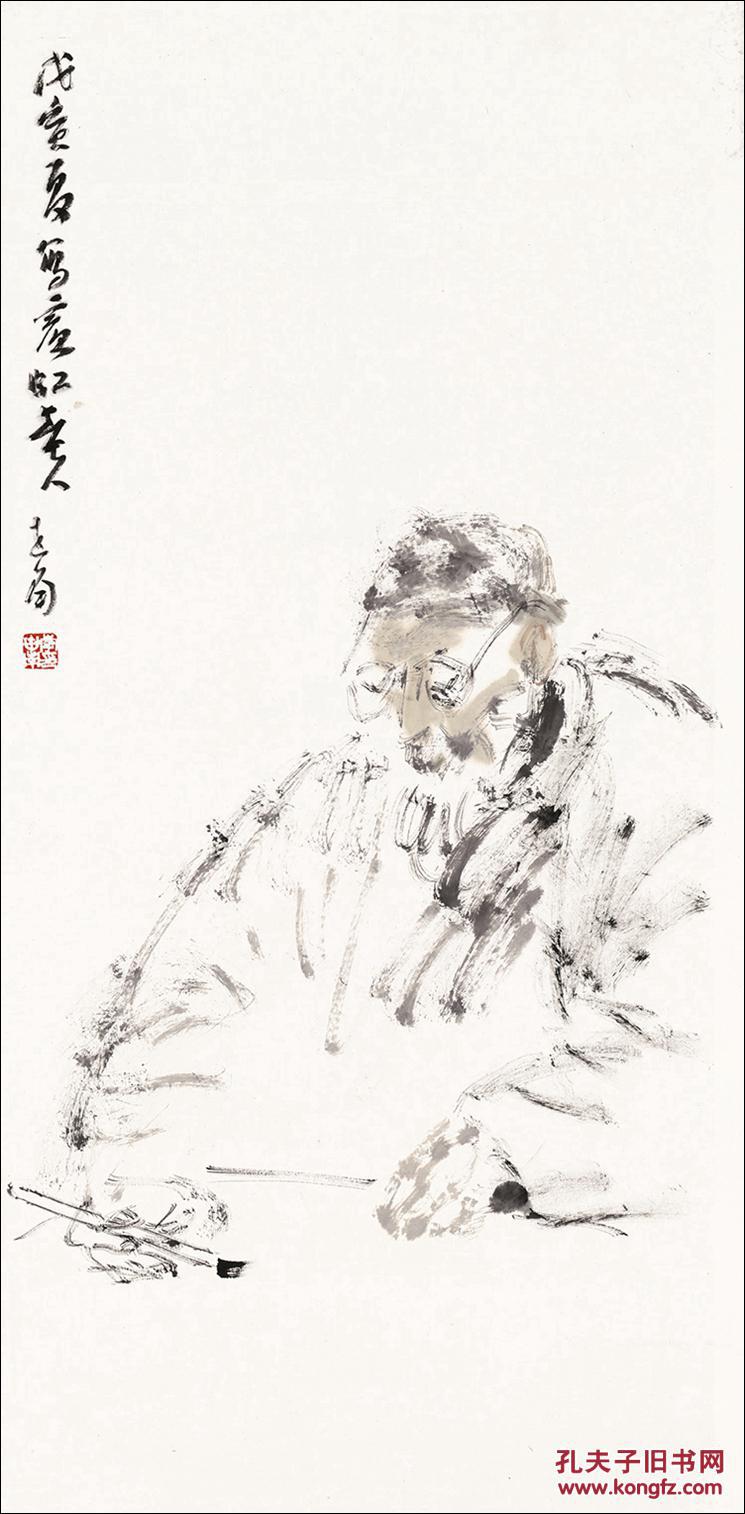 戊寅夏寫賓虹老人 世南
孔夫子旧书网
www.kongfz.com